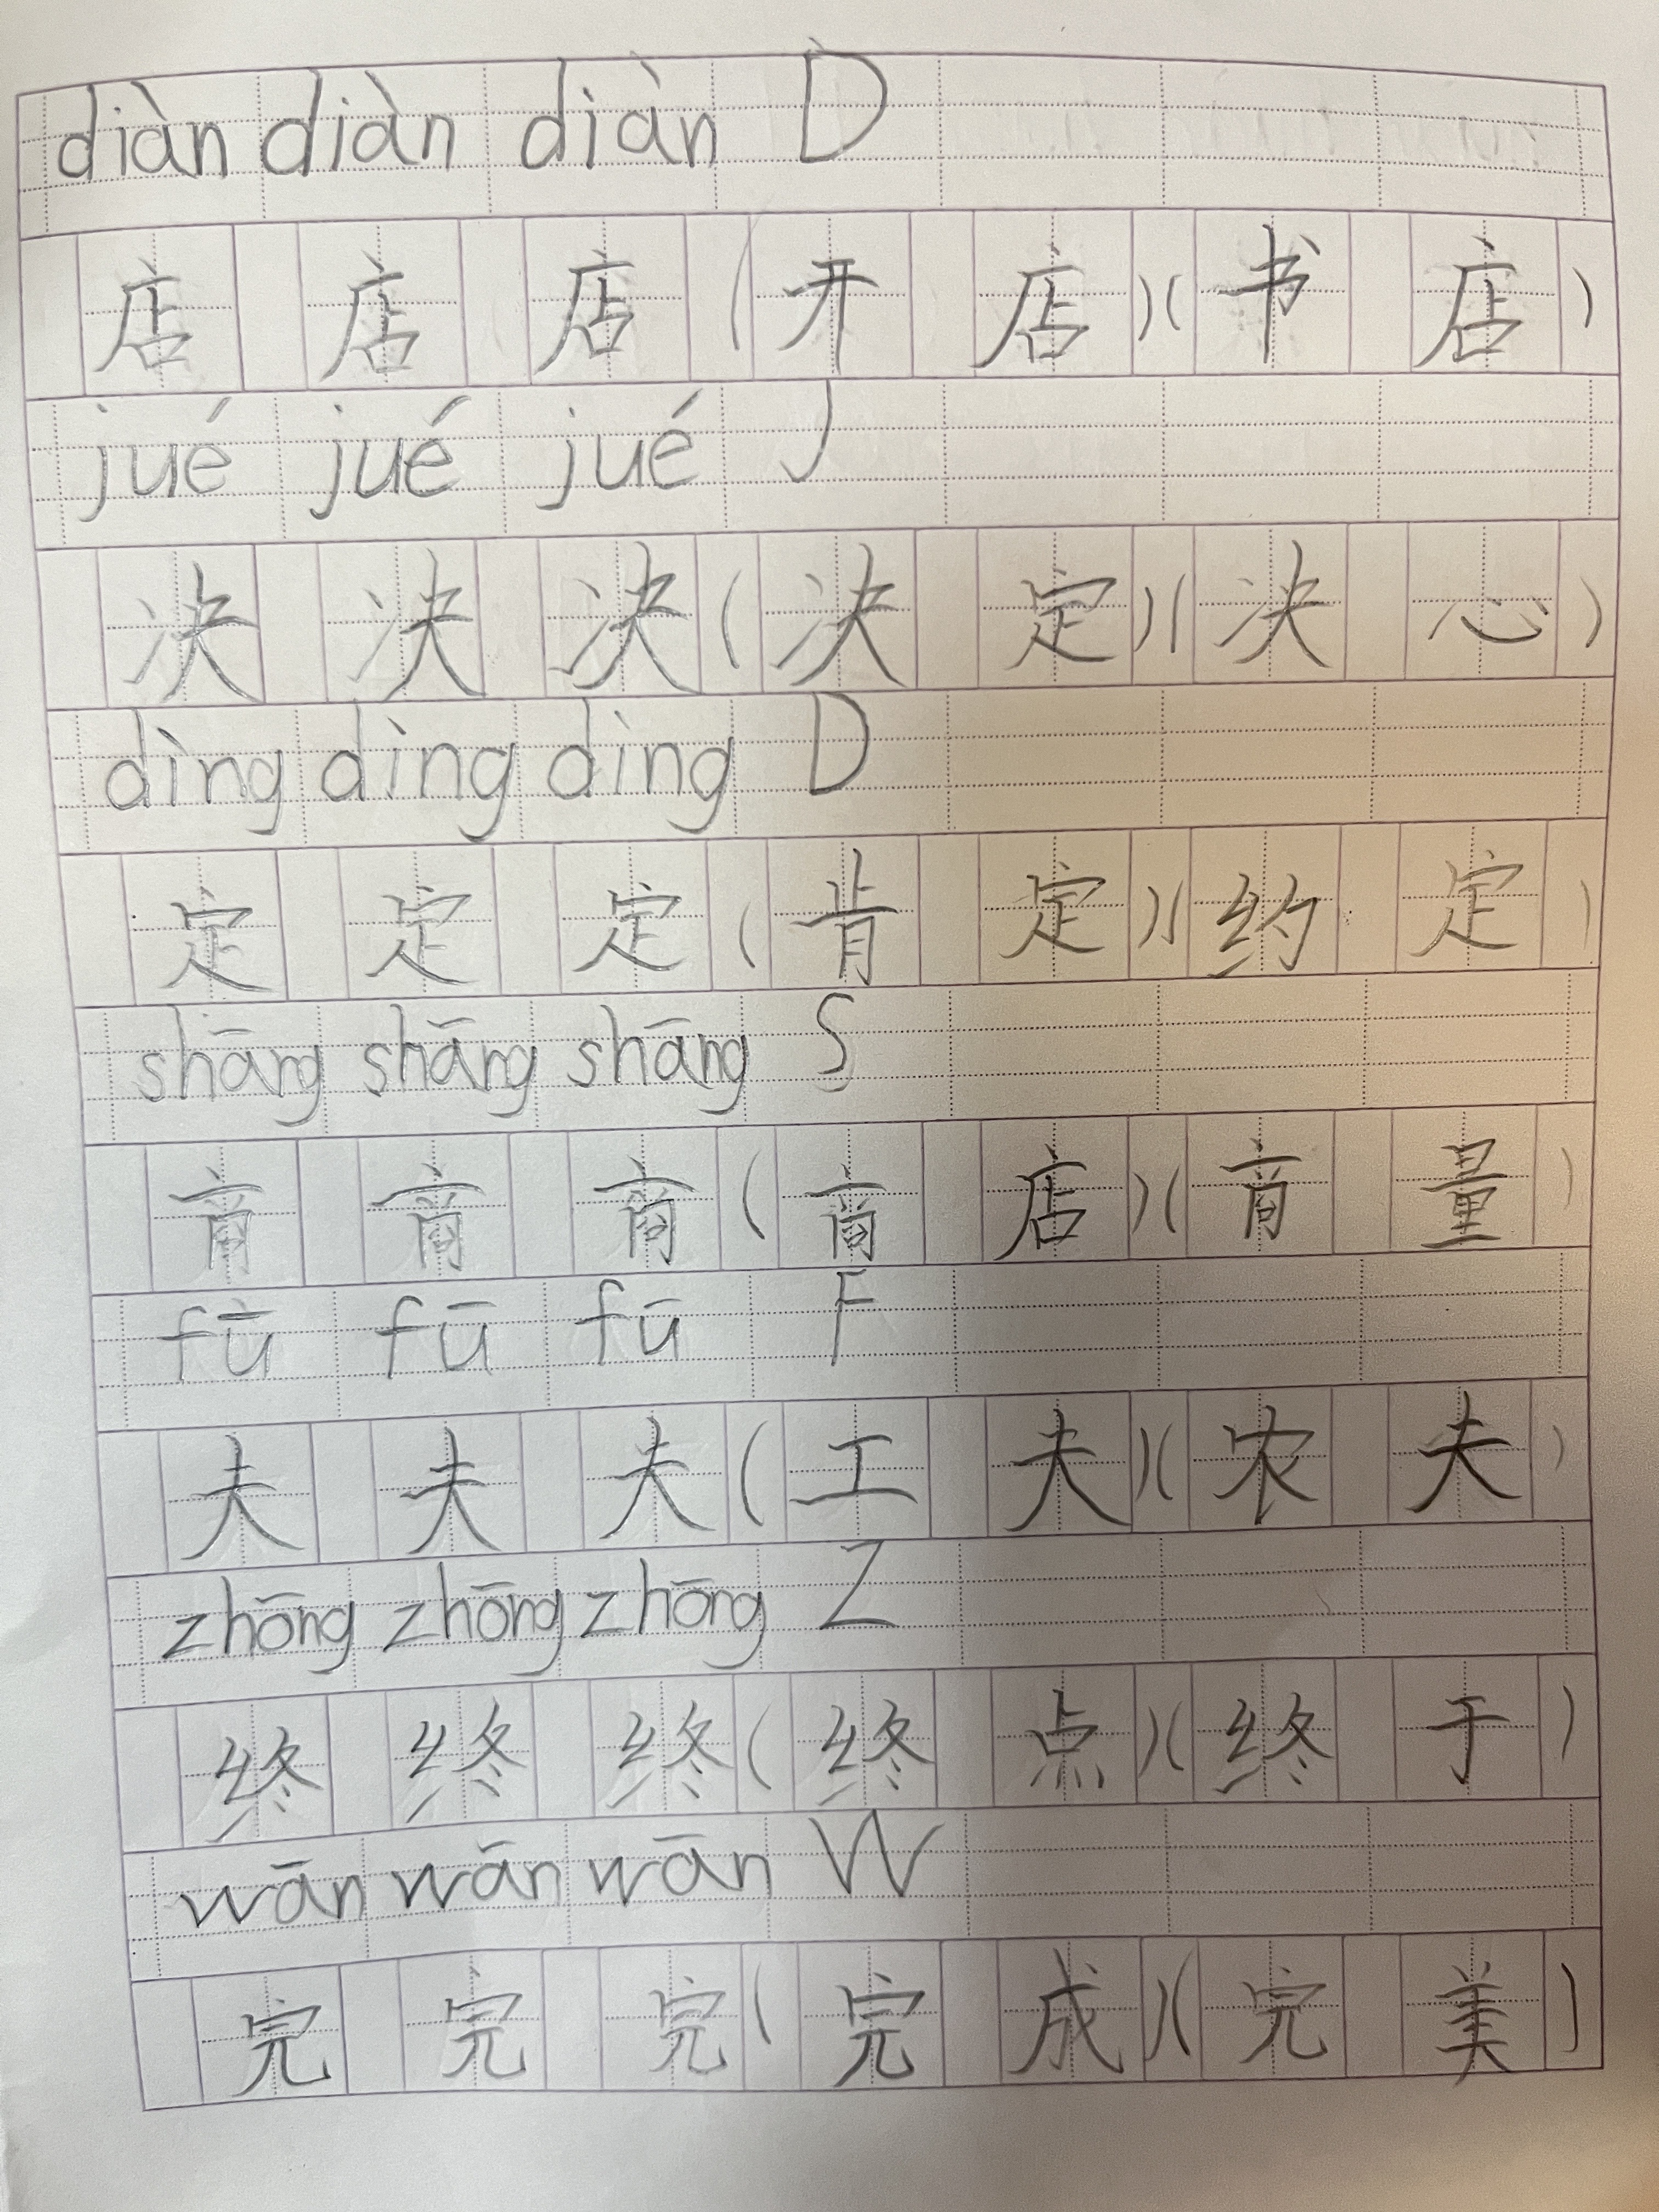 diàn diàn diàn D
店 店 店 (开 店)(书 店)
jué jué jué J
决 决 决 (决 定)(决 心)
dìng dìng dìng D
定 定 定 (肯 定)(约 定)
shāng shāng shāng S
商 商 商 (商 店)(商 量)
fū fū fū F
夫 夫 夫 (工 夫)(农 夫)
zhōng zhōng zhōng Z
终 终 终 (终 点)(终 于)
wān wān wān W
完 完 完 (完 成)(完 美)